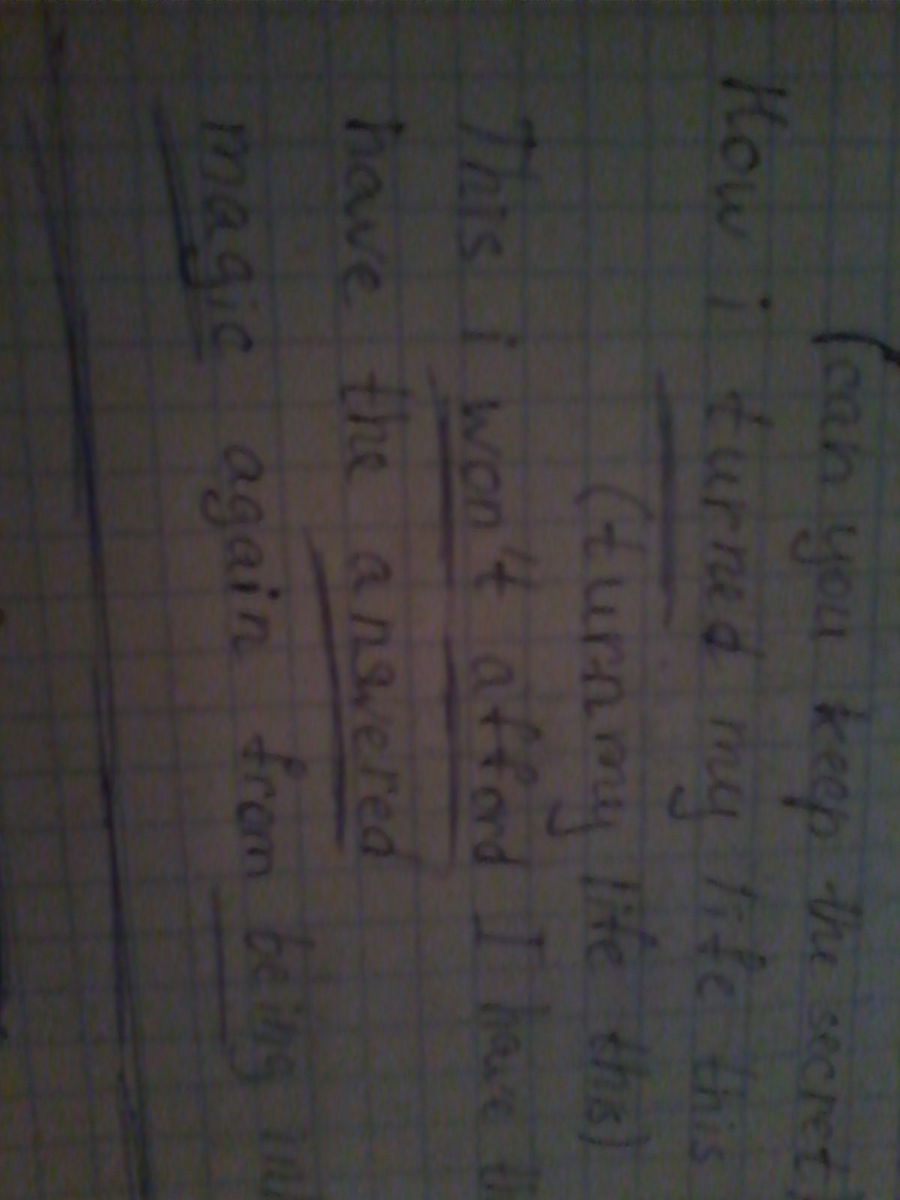 (can you keep the secret
How i turned my life this
(turn my life this)
This i won't afford I have
have the answered
magic again from being